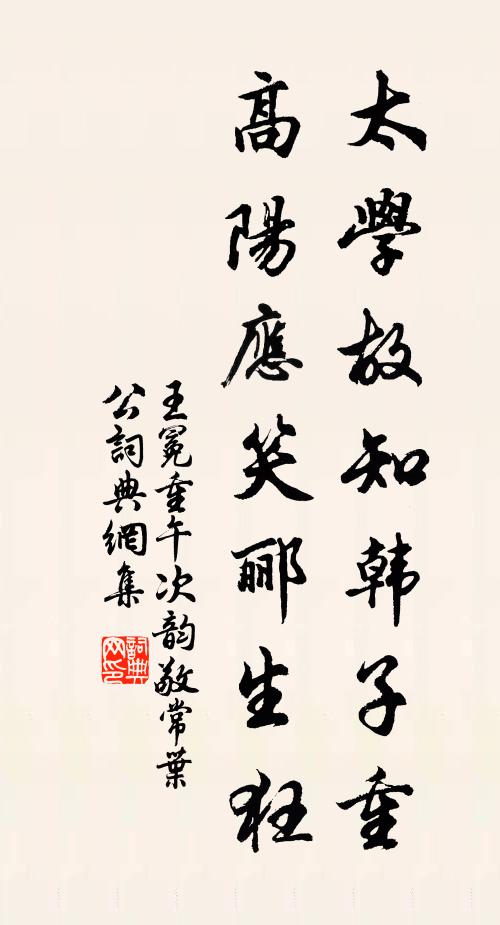 太學故知韩子重
高陽應笑郦生狂
王冕重午次韵敬常葉
公詞典網集
詞典
网印